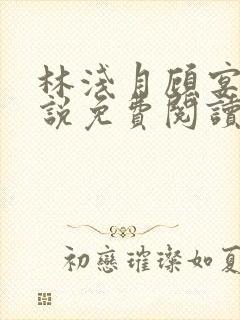 林淺月顧宴
說免費閱讀
初戀璀璨如夏